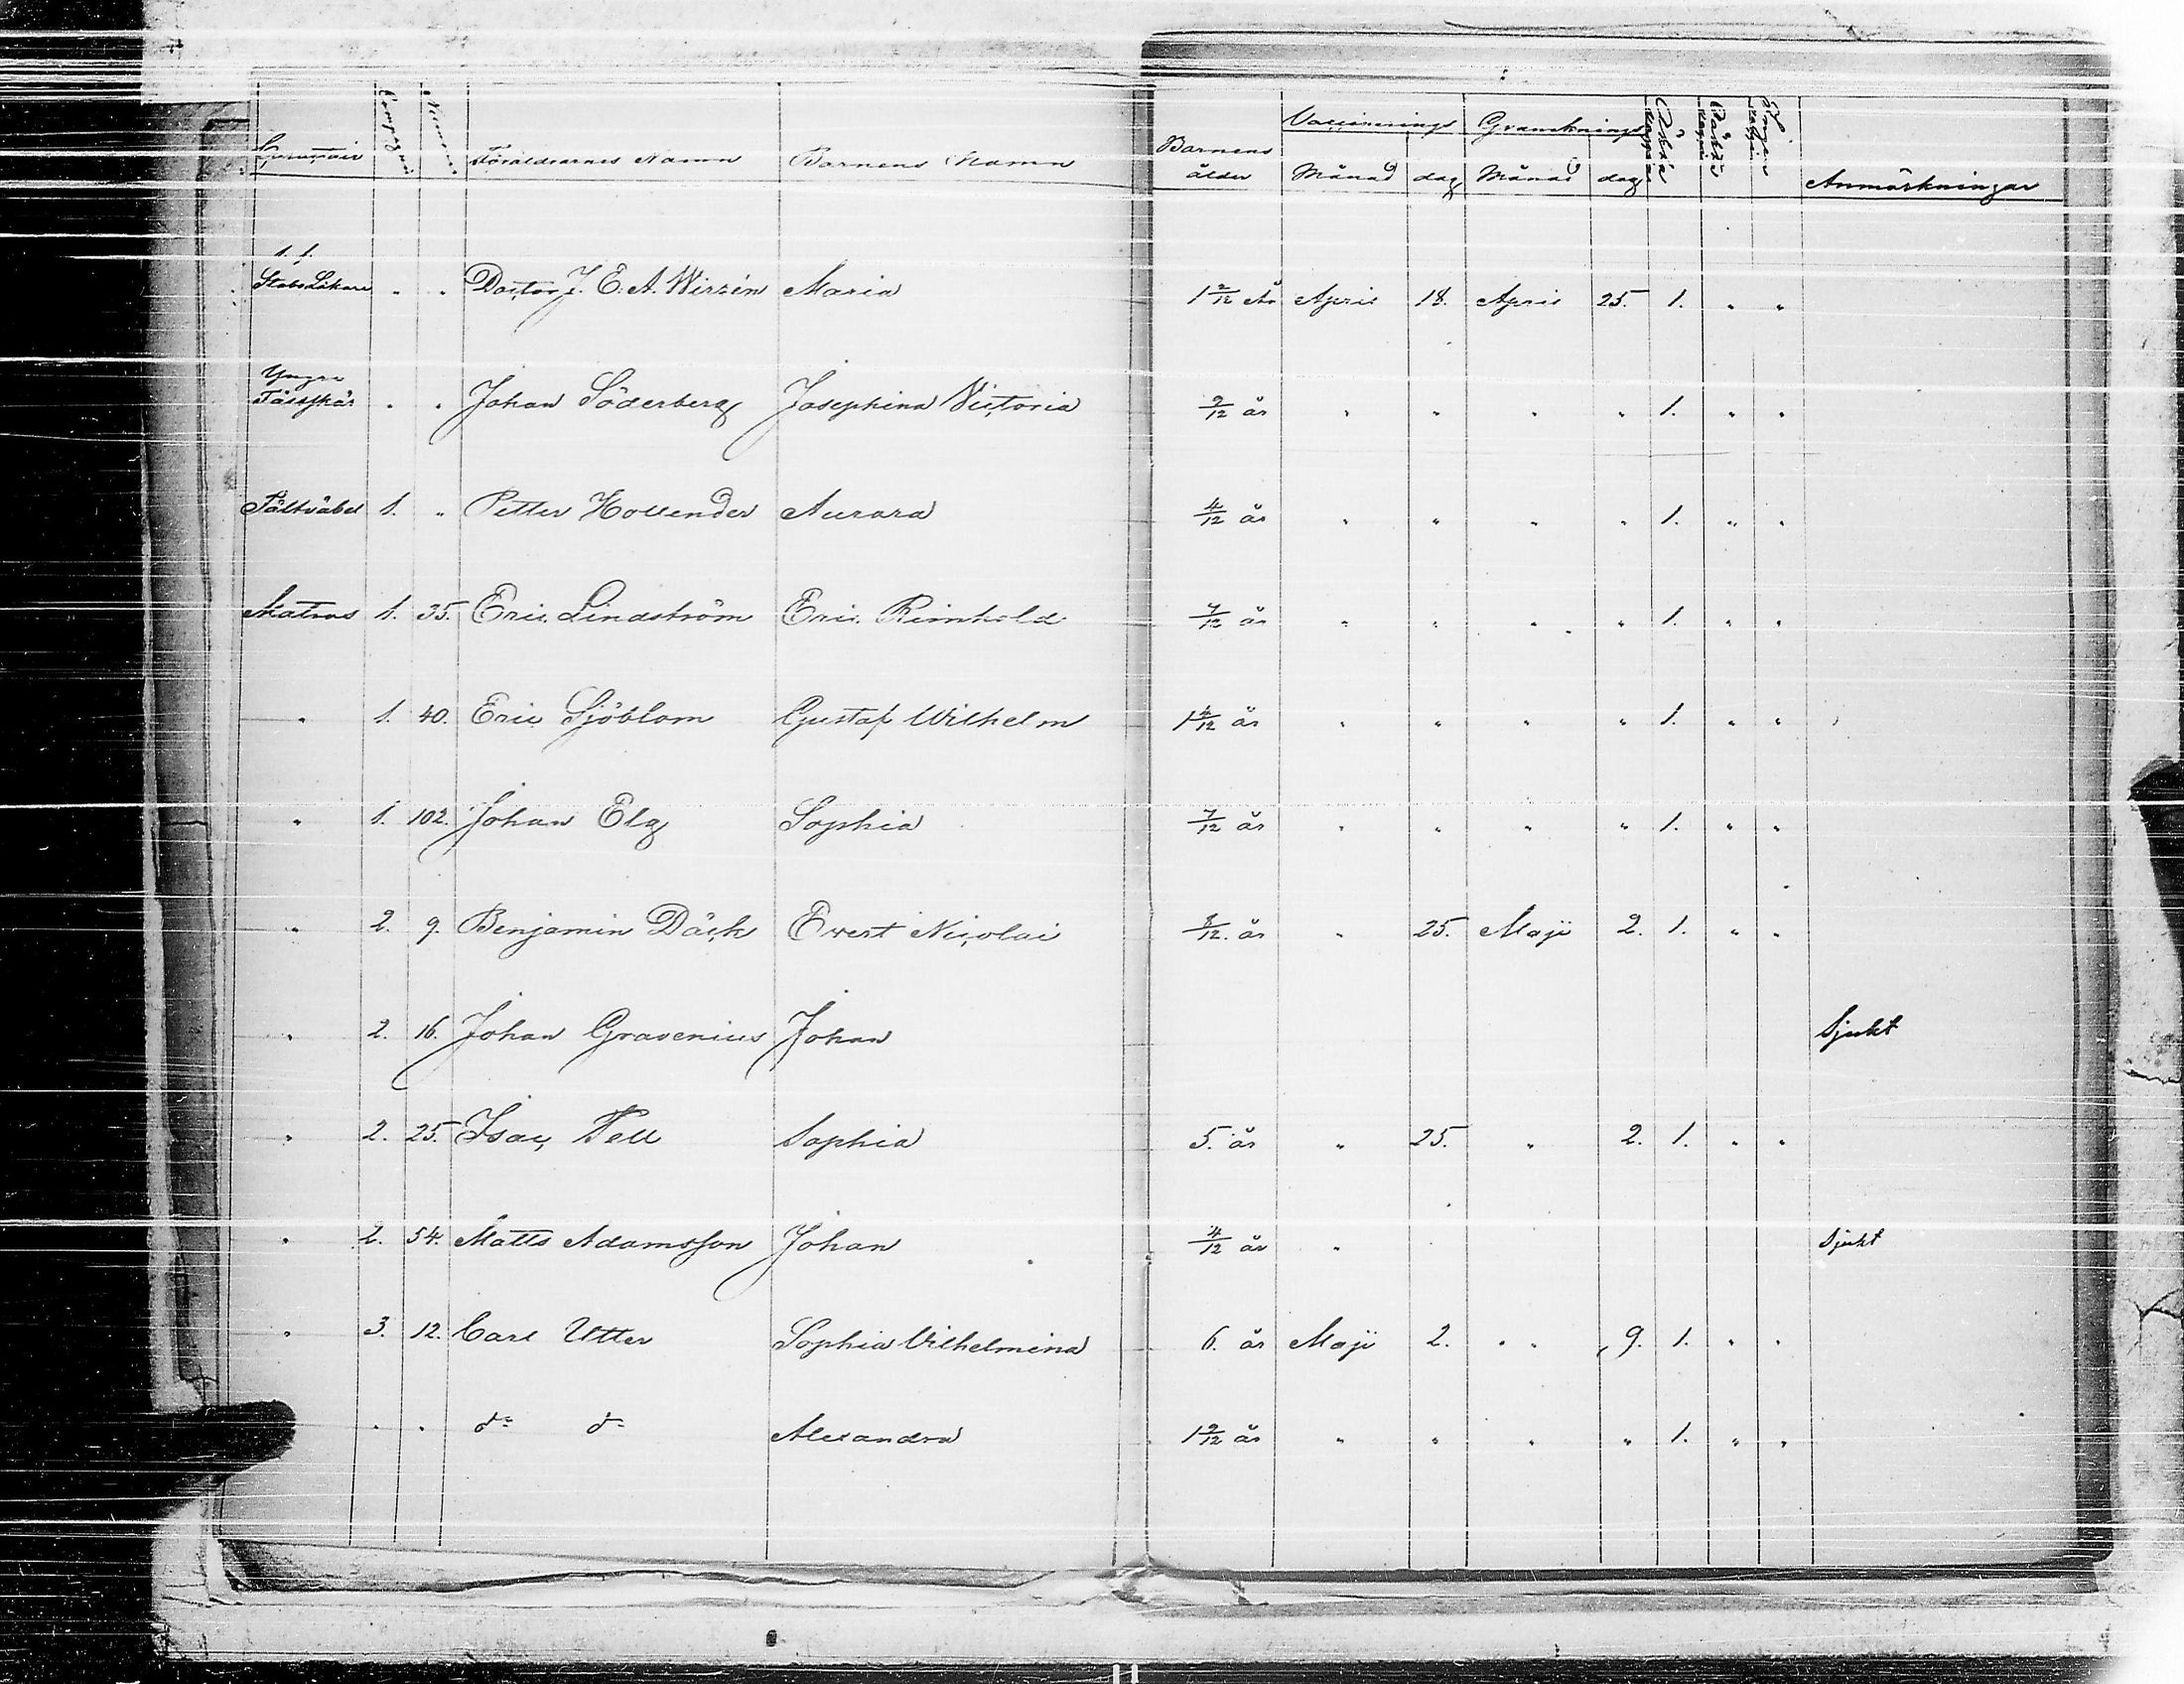 Compagni Nummer Föräldrarnes Namn Barnens Namn Barnens ålder Vaccinerings Månad dag Gransknings Månad dag Äckta Anmärkningar
t.f.
Stabs Läkare " " Doctor J. E. A. Wirzén Maria 1 2/12 år April 18. April 25. 1. " "
Yngre
Fältskär " " Johan Söderberg Josephina Victoria 9/12 år " " " " 1. " "
Fältväbel 1. " Petter Hollender Aurora 4/12 år " " " " 1. " "
Matros 1. 35. Eric Lindström Eric Reinhold 7/12 år " " " " 1. " "
" 1. 40. Eric Sjöblom Gustaf Wilhelm 1 4/12 år " " " " 1. " "
" 1. 102. Johan Elg Sophia 7/12 år " " " " 1. " "
" 2. 9. Benjamin Däck Evert Nicolai 8/12 år " 25. Maji 2. 1. " "
" 2. 16. Johan Gravenius Johan Sjukt
" 2. 25. Isac Fell Sophia 5. år " 25. " 2. 1. " "
" 2. 54. Matts Adamsson Johan 4/12 år " Sjukt
" 3. 12. Carl Utter Sophia Vilhelmina 6. år Maji 2. " 9. 1. " "
" " do do Alexandra 1 9/12 år " " " " 1. " "